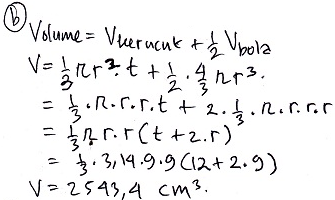 b
Volume = Vkerucut + 1/2 Vbola
V = 1/3 πr². t + 1/2 . 4/3 πr³.
= 1/3 . π. r. r. t + 2. 1/3 . π. r. r. r
= 1/3 π. r. r (t + 2. r)
= 1/3 . 3,14. 9. 9 (12 + 2. 9)
V = 2543,4 cm³.